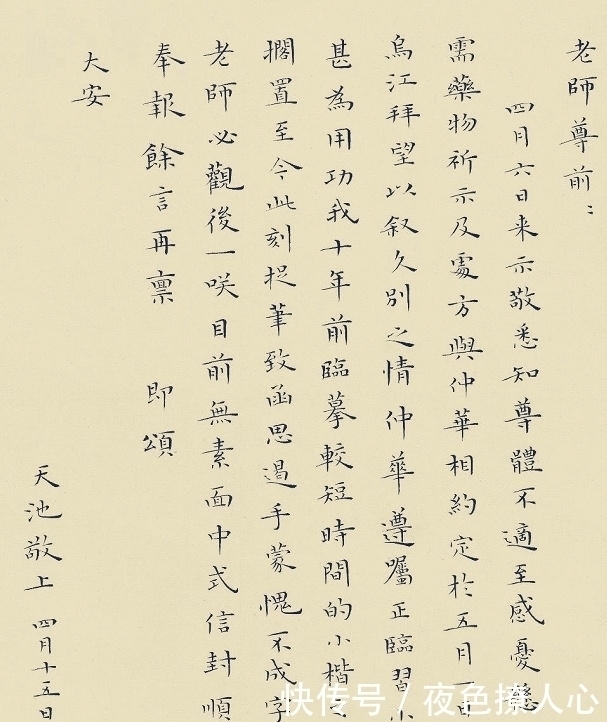 老師尊前：
四月六日来示敬悉知尊體不適至感憂
需藥物祈示及處方與仲華相約定於五月一日
烏江拜望以叙久別之情仲華遵囑正臨習小
甚為用功我十年前臨摹較短時間的小楷
擱置至今此刻捉筆致函思遏手蒙愧不成字
老師必觀後一咲目前無素面中式信封順
奉報餘言再禀 即頌
大安
天池敬上 四月十五日
快传号 / 夜色撩人心